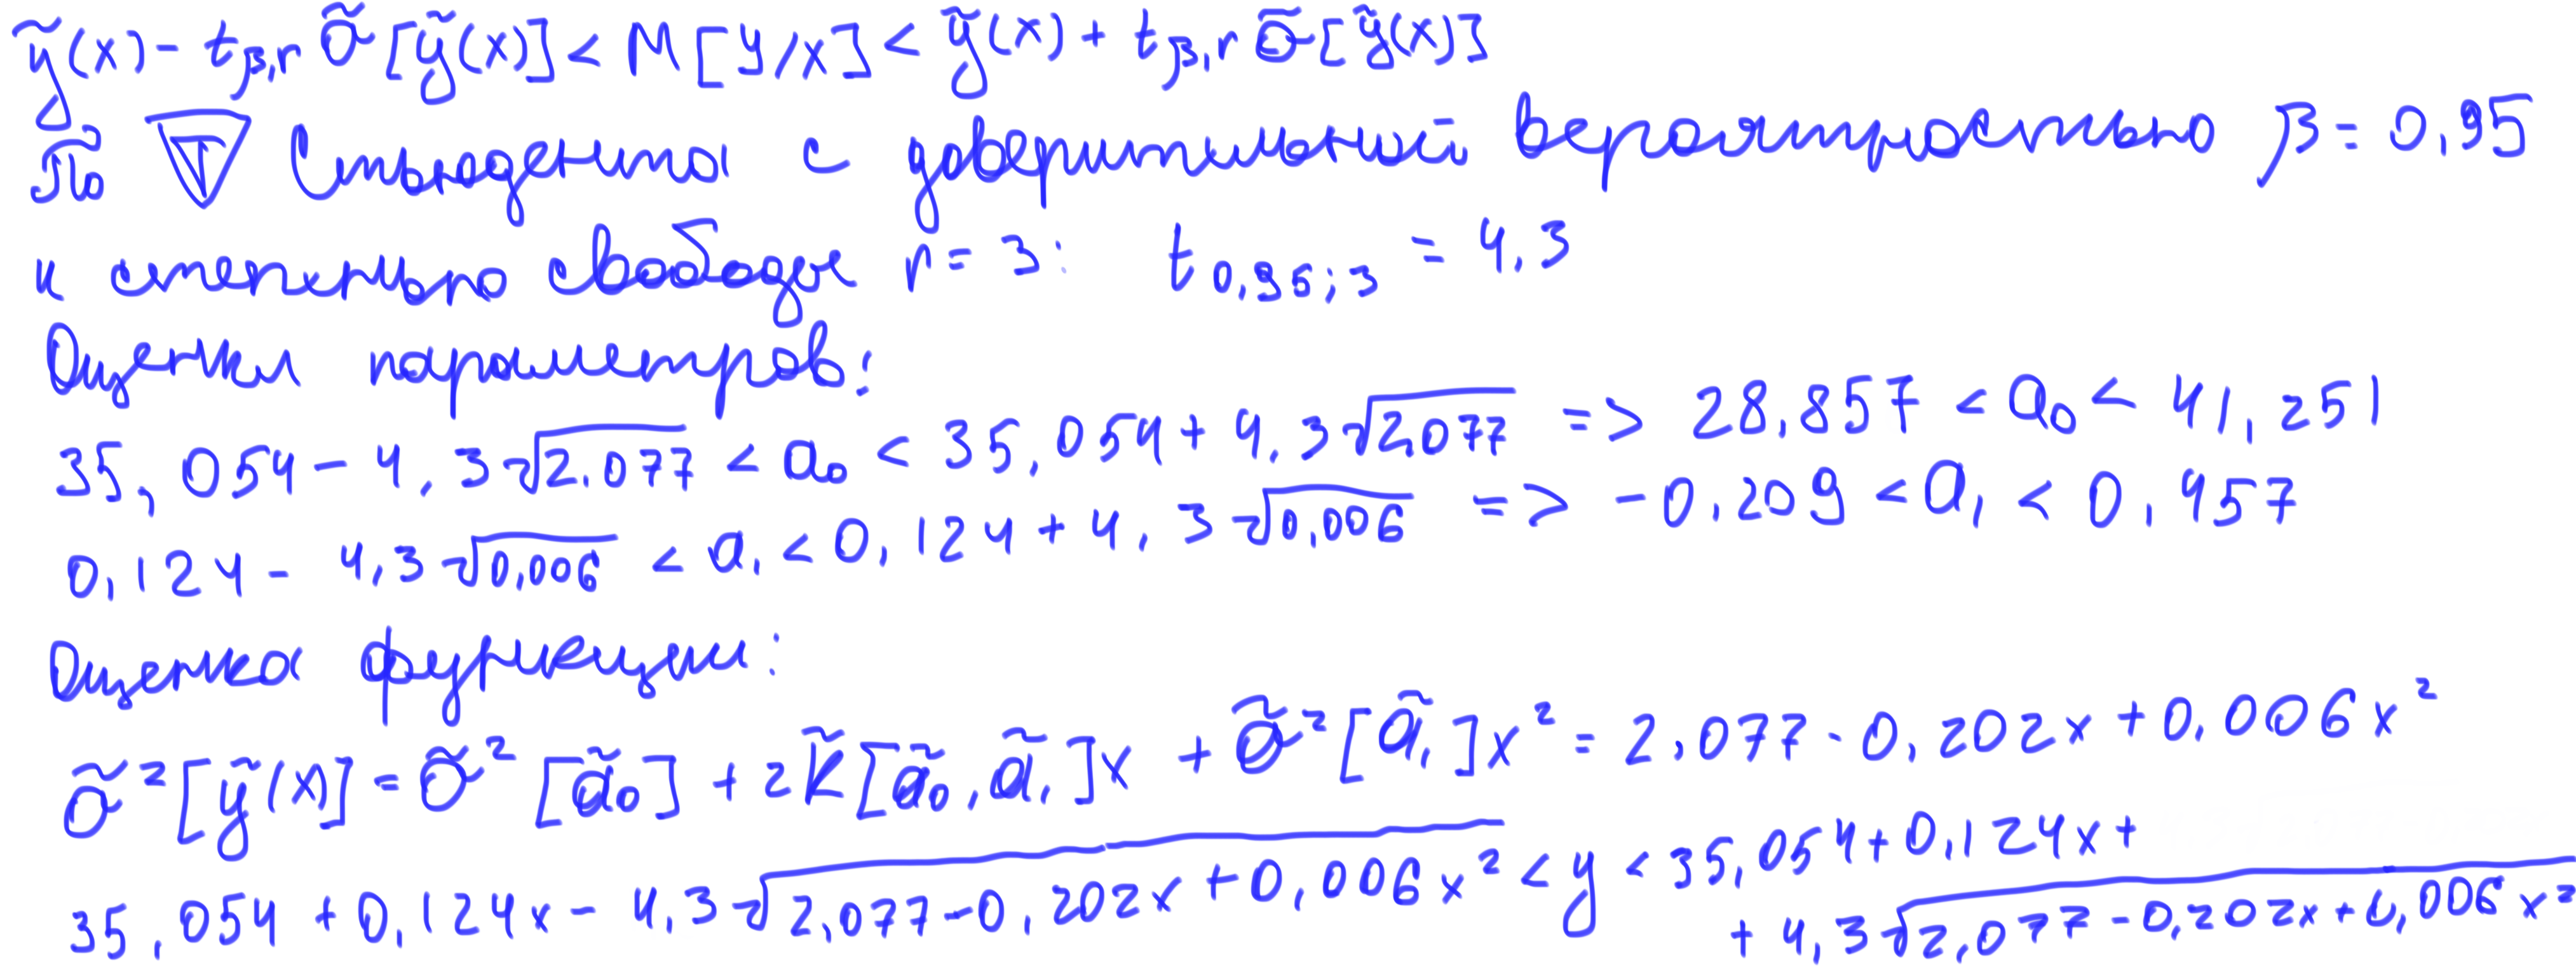 ỹ(x) - t_β,r σ̃[ỹ(x)] < M[y/x] < ỹ(x) + t_β,r σ̃[ỹ(x)]
По T Стьюдента с доверительной вероятностью β = 0,95
и степенью свободы r = 3: t_0,95;3 = 4,3
Оценки параметров:
35,054 - 4,3√2.077 < a₀ < 35,054 + 4,3√2,077 => 28,857 < a₀ < 41,251
0,124 - 4,3√0,006 < a₁ < 0,124 + 4,3√0,006 => -0,209 < a₁ < 0,457
Оценка функции:
σ̃²[ỹ(x)] = σ̃²[ã₀] + 2K̃[ã₀,ã₁]x + σ̃²[ã₁]x² = 2,077 - 0,202x + 0,006x²
35,054 + 0,124x - 4,3√(2,077 - 0,202x + 0,006x²) < y < 35,054 + 0,124x +
+ 4,3√(2,077 - 0,202x + 0,006x²)